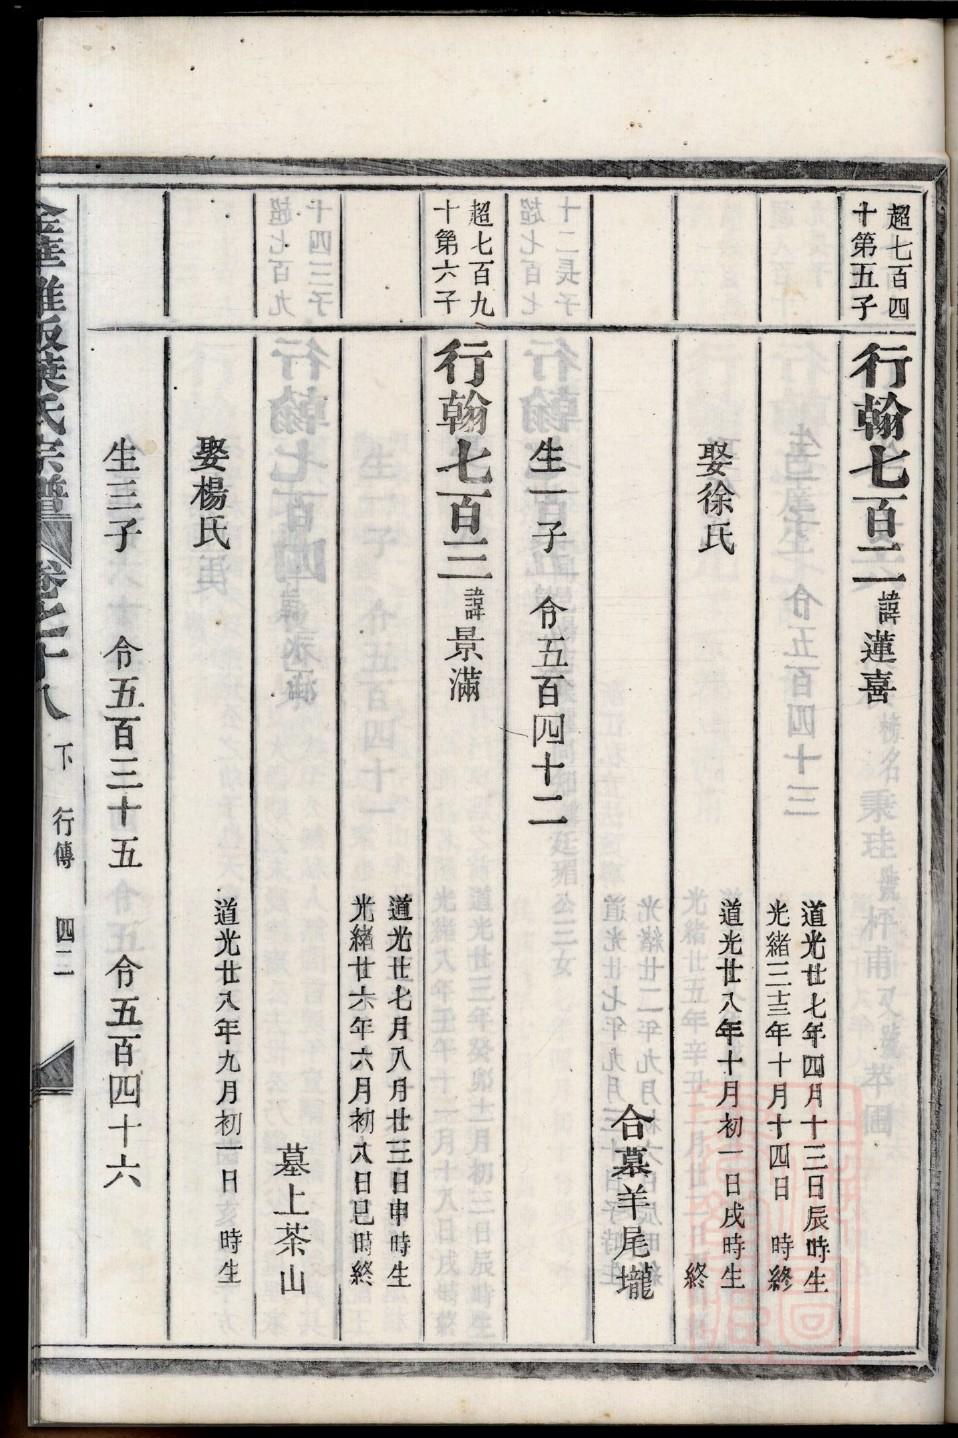 超七百四
十第五子
行翰七百二
諱蓮喜
道光廿七年四月十三日辰時生
光緒三十三年十月十四日 時終
娶徐氏
道光廿八年十月初一日戌時生
終
合墓羊尾壠
生一子 令五百四十二
超七百九
十第六子
行翰七百三
諱景滿
道光廿七月八月廿三日申時生
光緒廿六年六月初八日巳時終
墓上茶山
娶楊氏
道光廿八年九月初一日 時生
生三子 令五百三十五 令五百四十六
金華雅畈葉氏宗譜 卷之十八 下 行傳 四二